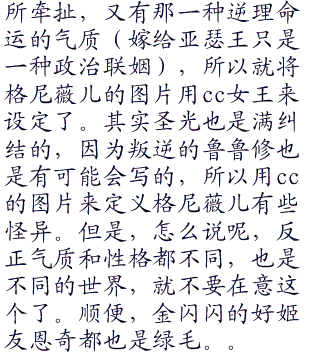 所牵扯，又有那一种逆理命
运的气质（嫁给亚瑟王只是
一种政治联姻），所以就将
格尼薇儿的图片用cc女王来
设定了。其实圣光也是满纠
结的，因为叛逆的鲁鲁修也
是有可能会写的，所以用cc
的图片来定义格尼薇儿有些
怪异。但是，怎么说呢，反
正气质和性格都不同，也是
不同的世界，就不要在意这
个了。顺便，金闪闪的好姬
友恩奇都也是绿毛。。